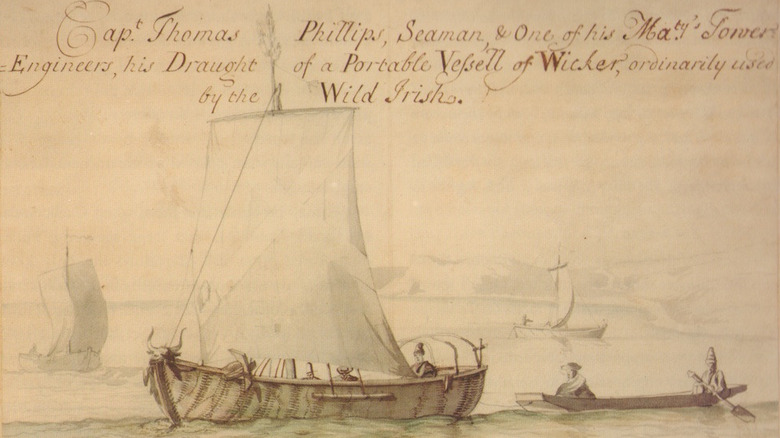 Capt. Thomas Phillips, Seaman, & One of his Maty's Tower
=Engineers, his Draught of a Portable Vessell of Wicker, ordinarily used
by the Wild Irish.